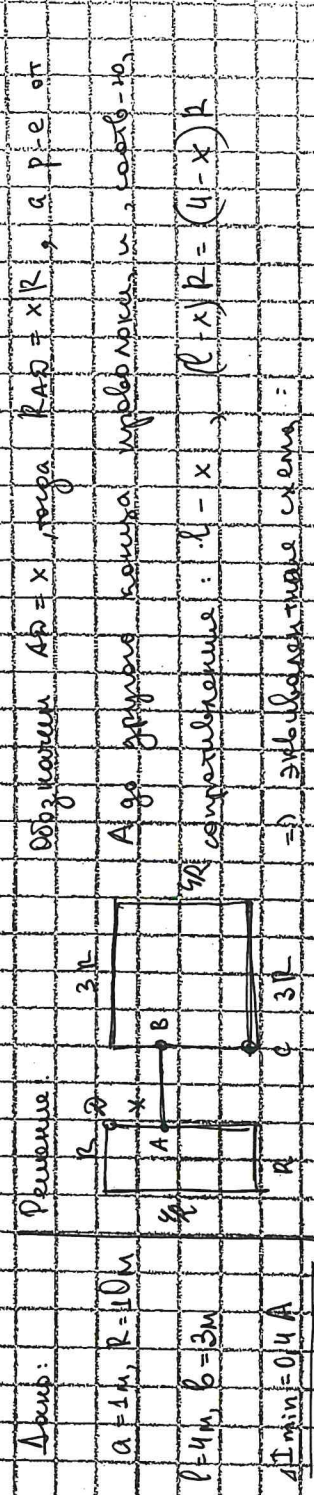 Дано:
a = 1м, R = 1Ом
l = 4м, b = 3м
ΔImin = 0,4 А
Решение:
Обозначим AD = x, тогда RAD = xR, а р-е от
A до другого конца проволоки и, соотв-но,
сопротивление: l - x, (l - x)R = (4 - x)R
=> эквивалентная схема:
R D 3R
x B
A
4R 4R
C
R 3R